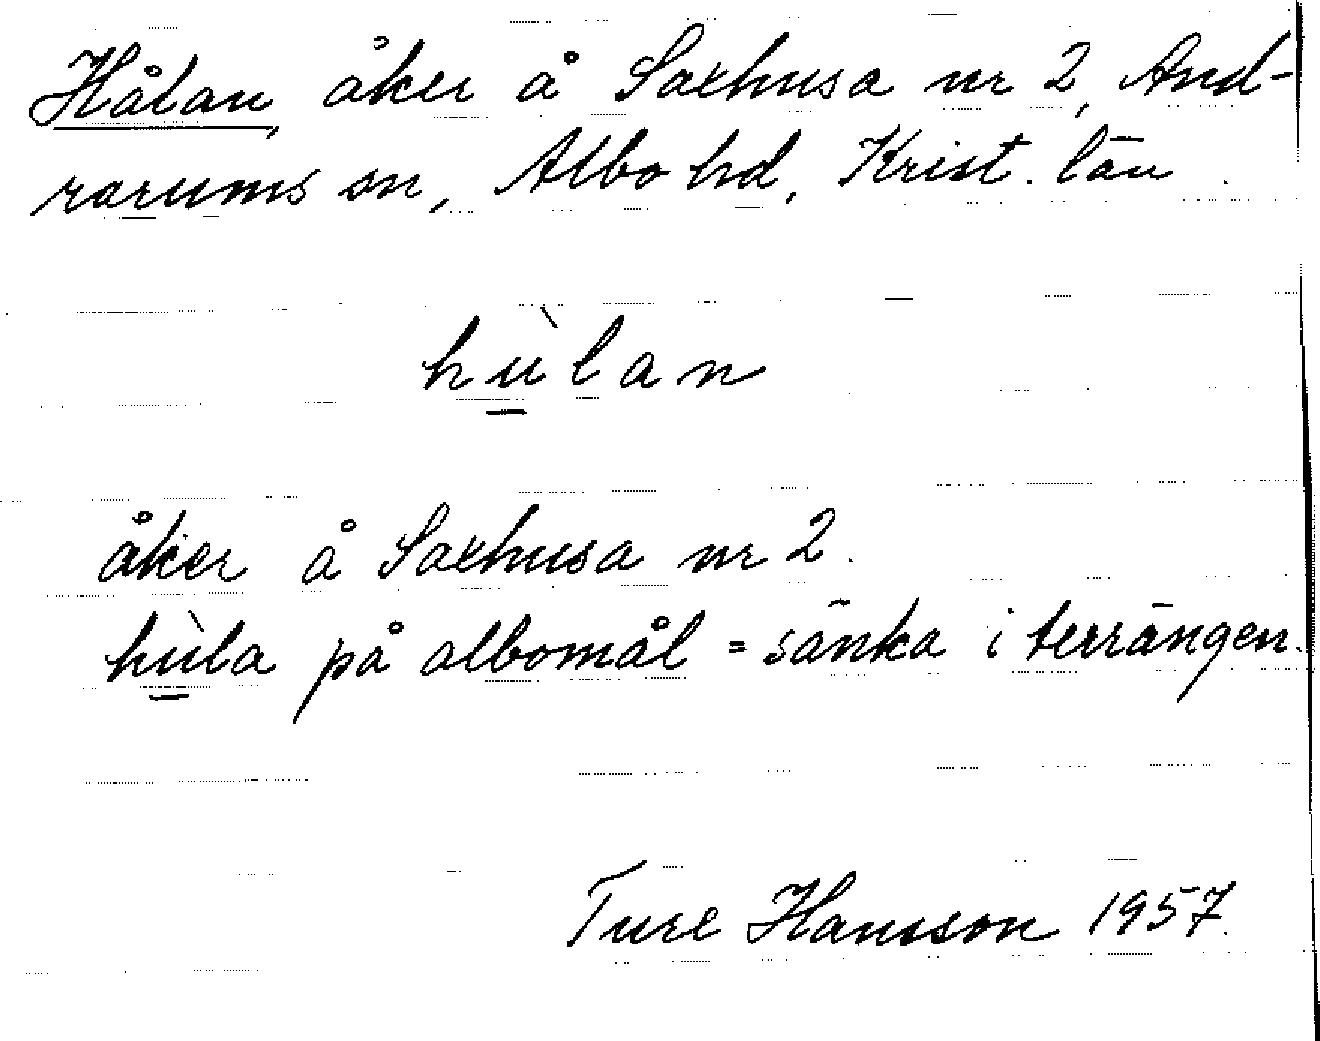 Hålan, åker å Saxhusa nr 2, And-
rarums sn, Albo hd, Krist. län.
hù̲lan
åker å Saxhusa nr 2.
hù̲la på albomål = sänka i terrängen.
Ture Hansson 1957.